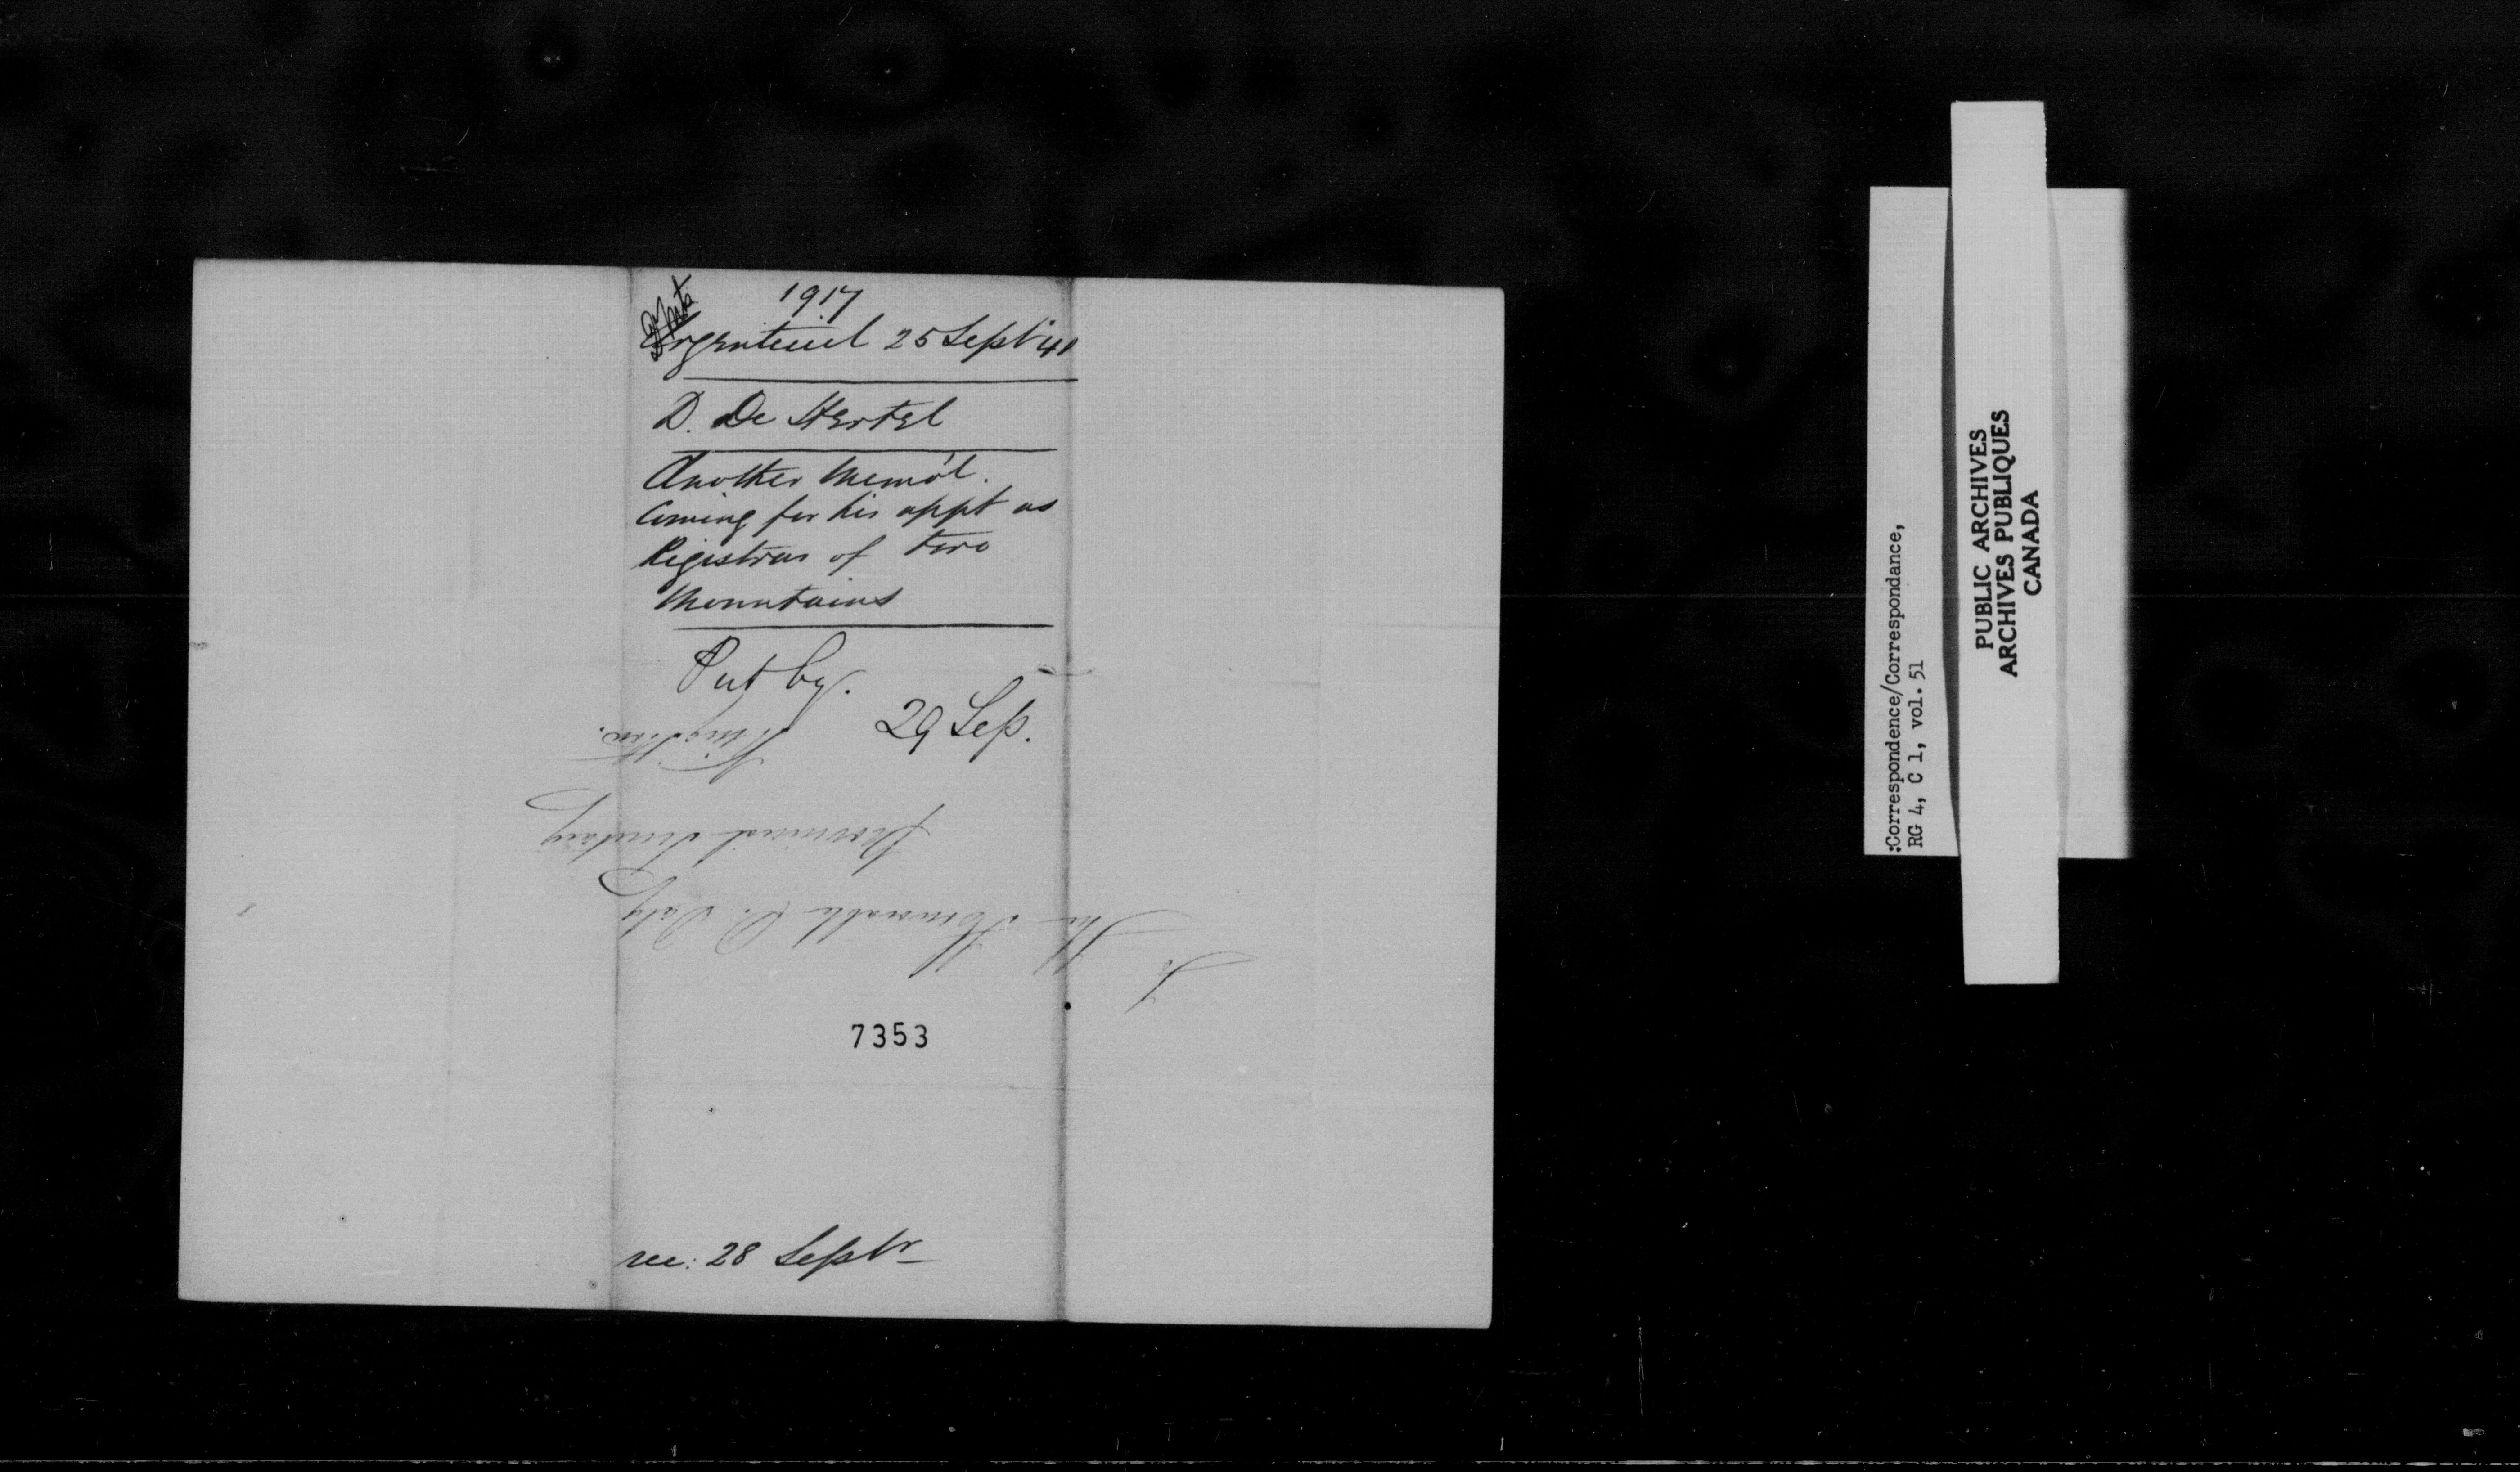 1917
Argenteuil 25 Sept '41
D. De Hertel
Another Mem'l.
Coming for his appt as
Registrar of two
Mountains
Put by.
29 Sep.
To
The Honorable D. Daly
Provincial Secretary
Kingston.
7353
rec: 28 Septr
:Correspondence/Correspondance,
RG 4, C 1, vol. 51
PUBLIC ARCHIVES
ARCHIVES PUBLIQUES
CANADA